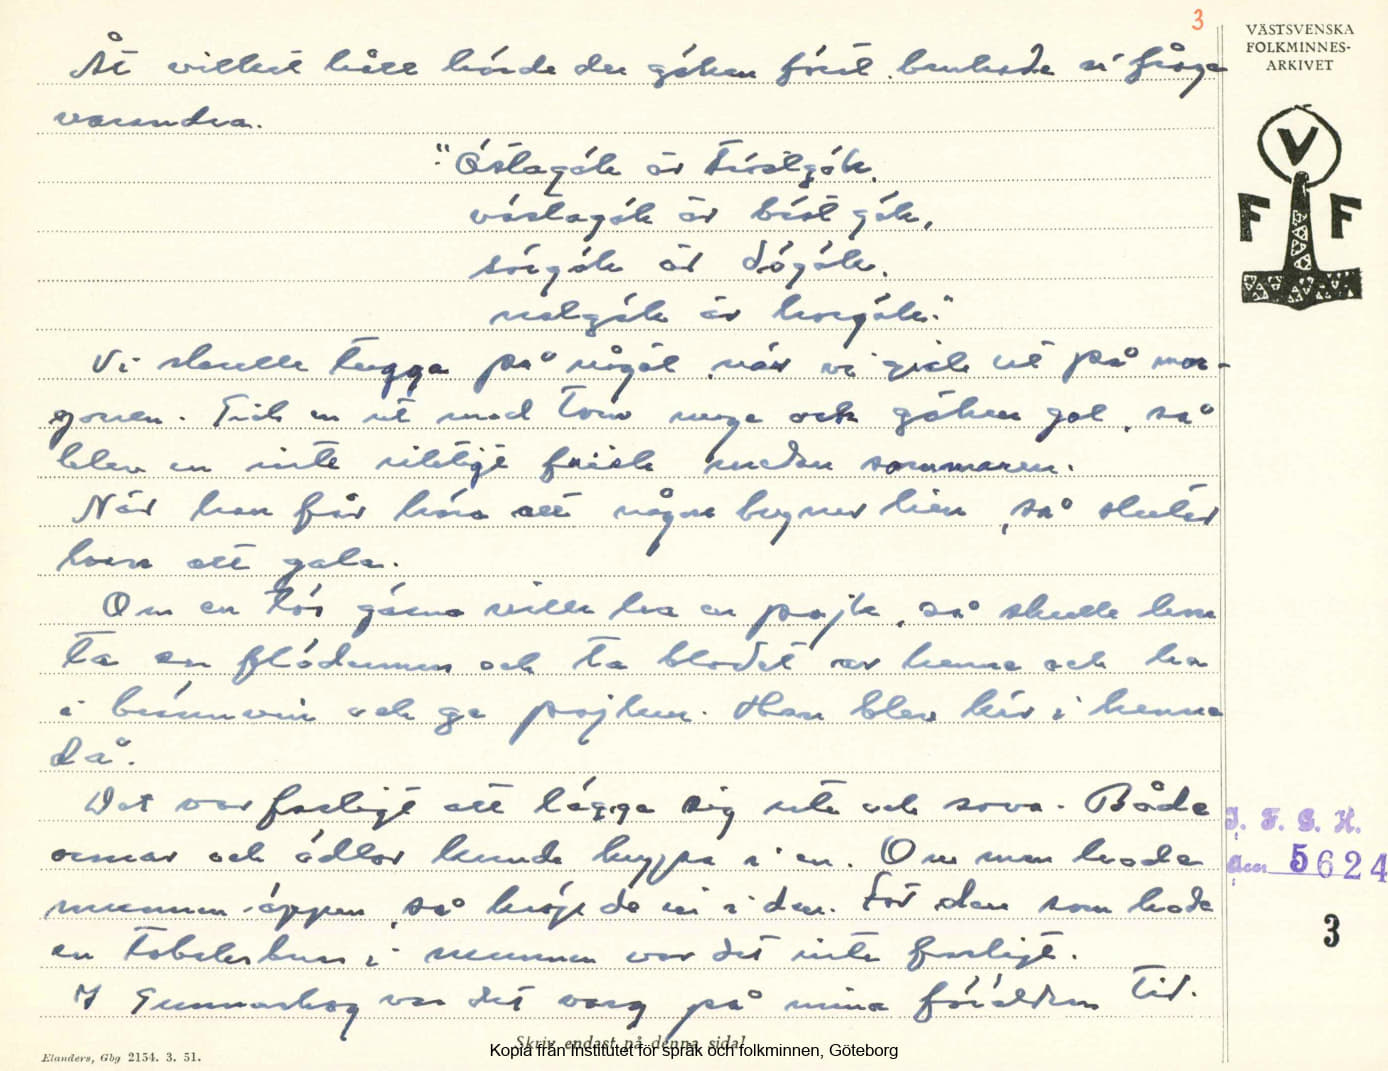 3
VÄSTSVENSKA
FOLKMINNES-
ARKIVET
Åt vilket håll hörde du göken först, brukade vi fråga
varandra.
"Östagök är tröstgök,
västagök är bäst gök,
sörgök är dögök,
nolgök är horgök."
Vi skulle tugga på något, när vi gick ut på mor-
gonen. Gick en ut med tom mage och göken gol, så
blev en inte riktigt frisk under sommaren.
När han får höra att någon bryner lien, så slutar
han att gala.
Om en tös gärna ville ha en pojk, så skulle hon
ta en flädermus och ta blodet av henne och ha
i brännvin och ge pojken. Han blev kär i henne
då.
Det var farligt att lägga sig ute och sova. Både
ormar och ödlor kunde krypa i en. Om man hade
munnen öppen, så kröp de in i den. För den som hade
en tobaksbuss i munnen var det inte farligt.
I Gunnarskog var det varg på mina föräldrars tid.
V
F F
I. F. G. H.
Acc 5624
3
Skriv endast på denna sida!
Kopia från Institutet för språk och folkminnen, Göteborg
Elanders, Gbg 2154. 3. 51.